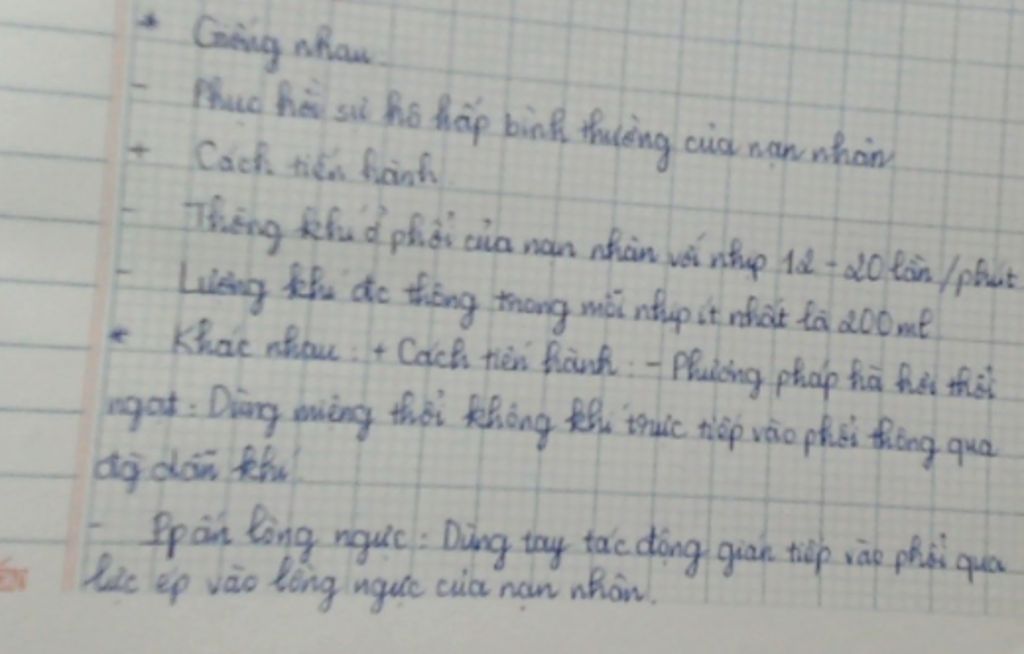 * Giống nhau
- Phục hồi sự hô hấp bình thường của nạn nhân
+ Cách tiến hành.
- Thông khí ở phổi của nạn nhân với nhịp 12 - 20 lần / phút
- Lượng khí đc thông trong mỗi nhịp ít nhất là 200 ml
* Khác nhau : + Cách tiến hành : - Phương pháp hà hơi thổi
ngạt : Dùng miệng thổi không khí trực tiếp vào phổi thông qua
đg dẫn khí
- Pp ấn lồng ngực : Dùng tay tác động gián tiếp vào phổi qua
lực ép vào lồng ngực của nạn nhân.